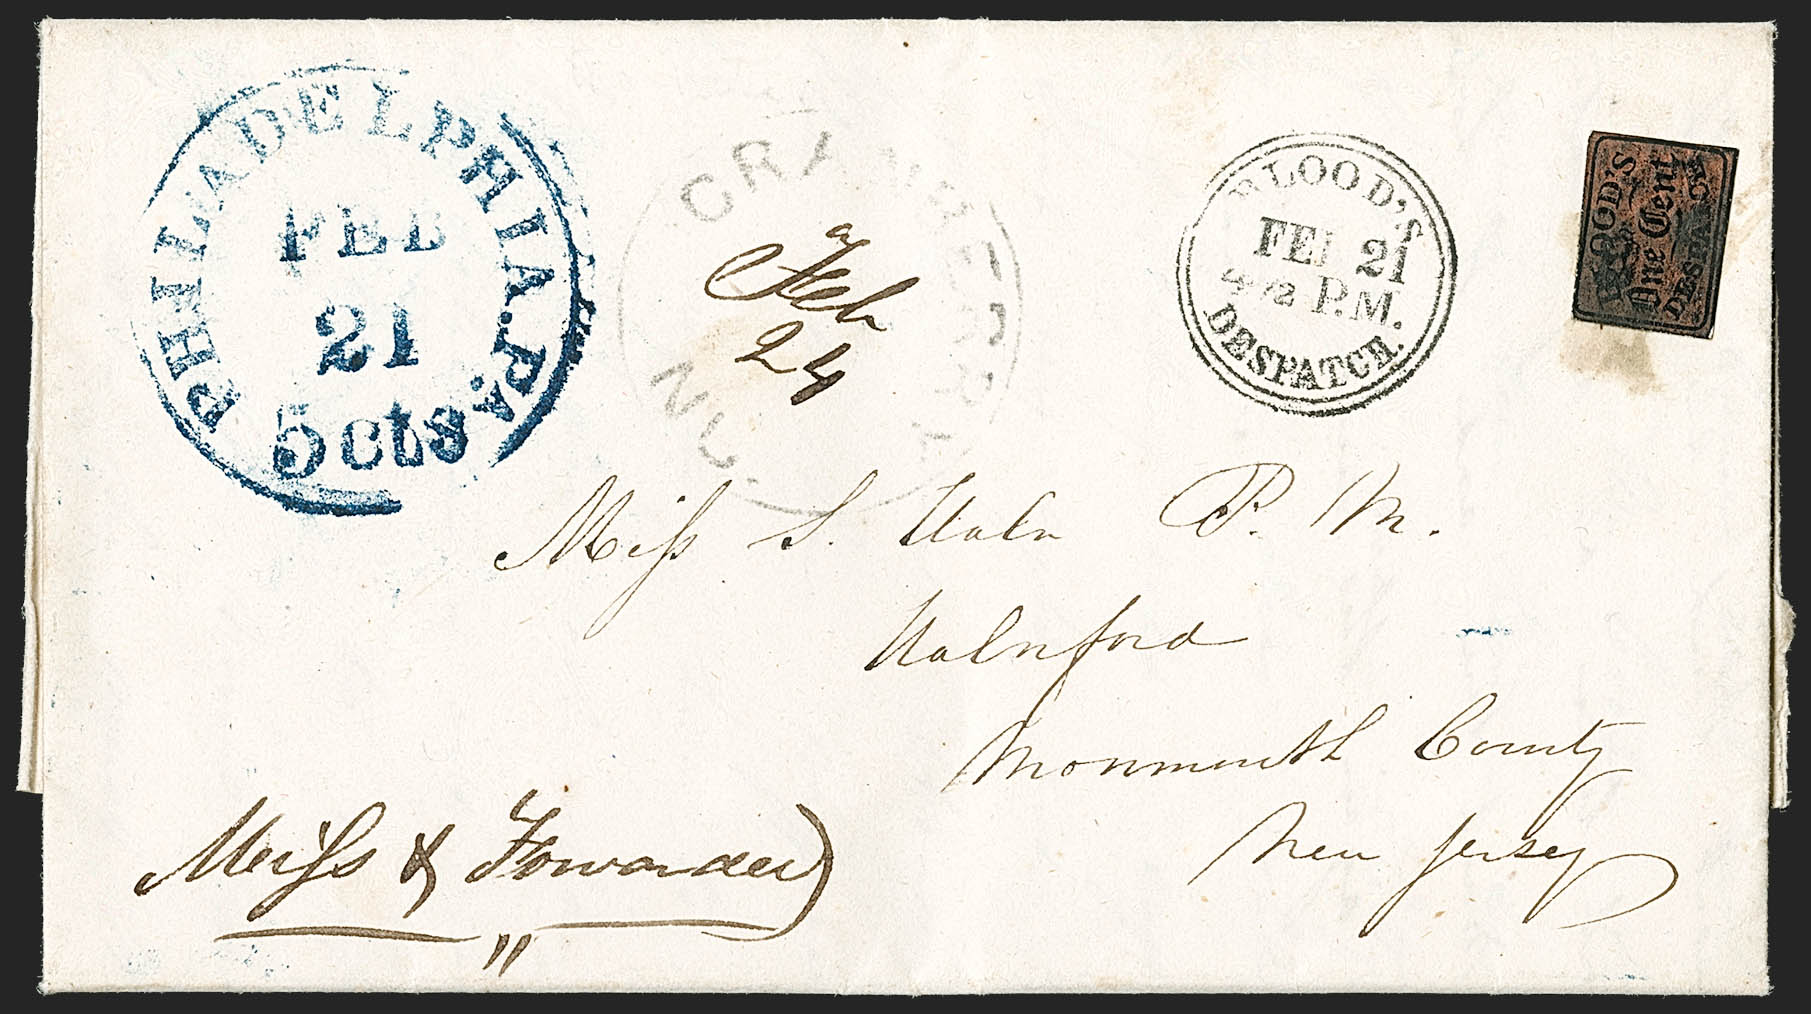 PHILADELPHIA.PA.
FEB
21
5cts
CRANBERRY
N.J.
Feb
24
BLOOD'S
FEB 21
4½ P.M.
DESPATCH.
BLOOD'S
One Cent
DESPATCH
Miss S. Waln P. M.
Walnford
Monmouth County
New Jersey
Missd & Forwarded